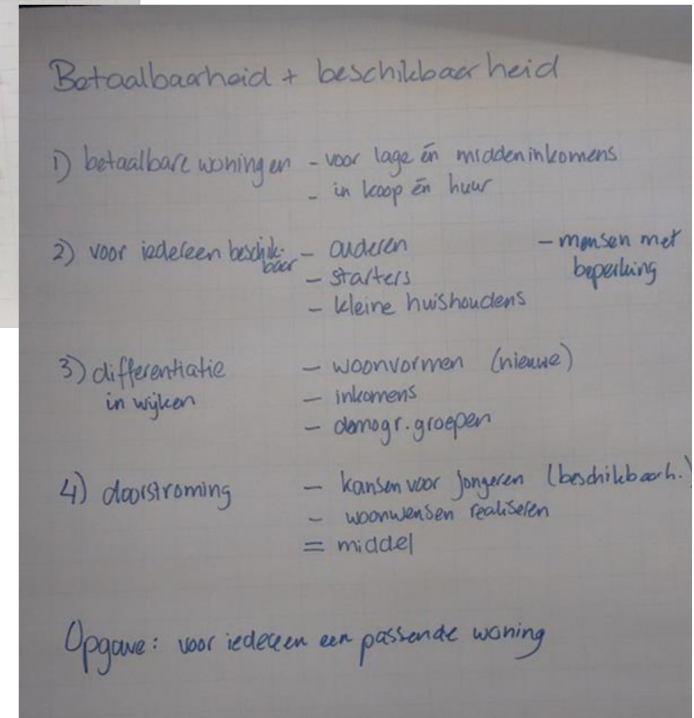 Betaalbaarheid + beschikbaarheid
1) betaalbare woningen - voor lage én middeninkomens
- in koop én huur
2) voor iedereen beschik-baar - ouderen - mensen met beperking
- starters
- kleine huishoudens
3) differentiatie in wijken - woonvormen (nieuwe)
- inkomens
- demogr. groepen
4) doorstroming - kansen voor jongeren (beschikbaarh.)
- woonwensen realiseren
= middel
Opgave: voor iedereen een passende woning